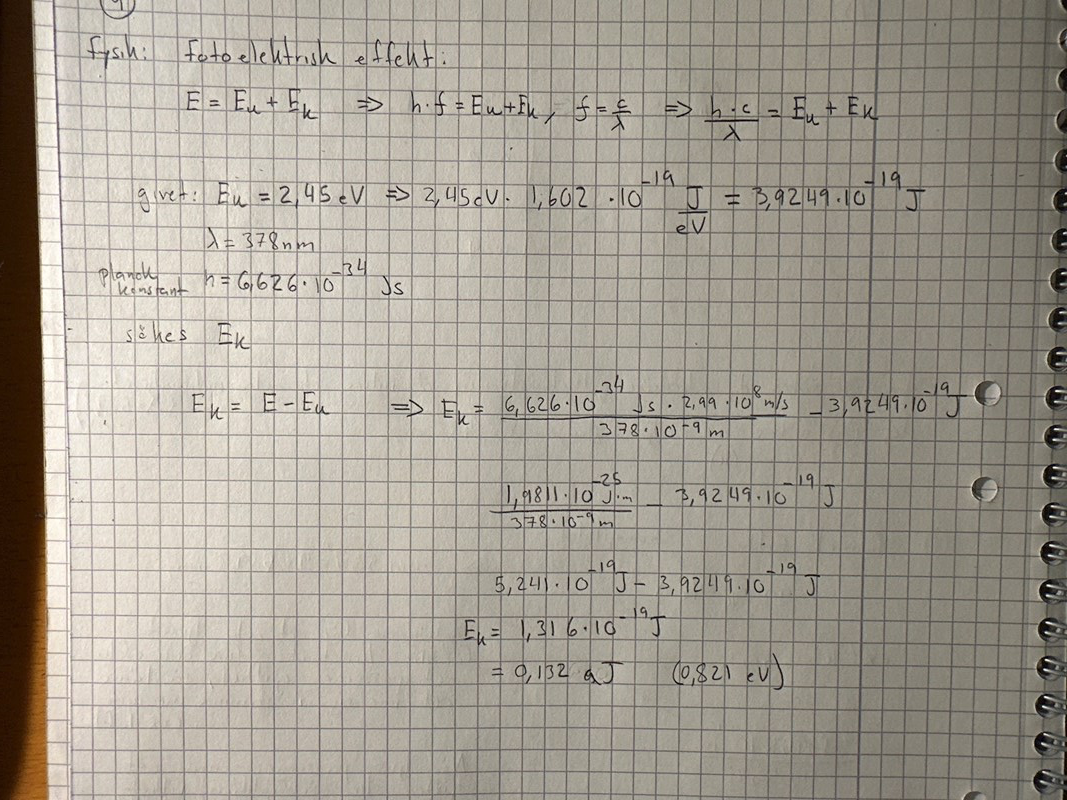 9
Fysik: Fotoelektrisk effekt:
E = Eu + Ek ⇒ h·f = Eu+Ek, f = c/λ ⇒ h·c/λ = Eu + Ek
givet: Eu = 2,45 eV ⇒ 2,45eV · 1,602 · 10^-19 J/eV = 3,9249·10^-19 J
λ = 378nm
planck konstant h = 6,626·10^-34 Js
sökes Ek
Ek = E - Eu ⇒ Ek = 6,626·10^-34 Js · 2,99·10^8 m/s / 378·10^-9 m - 3,9249·10^-19 J
1,9811·10^-25 J·m / 378·10^-9 m - 3,9249·10^-19 J
5,241·10^-19 J - 3,9249·10^-19 J
Ek = 1,316·10^-19 J
= 0,132 aJ (0,821 eV)